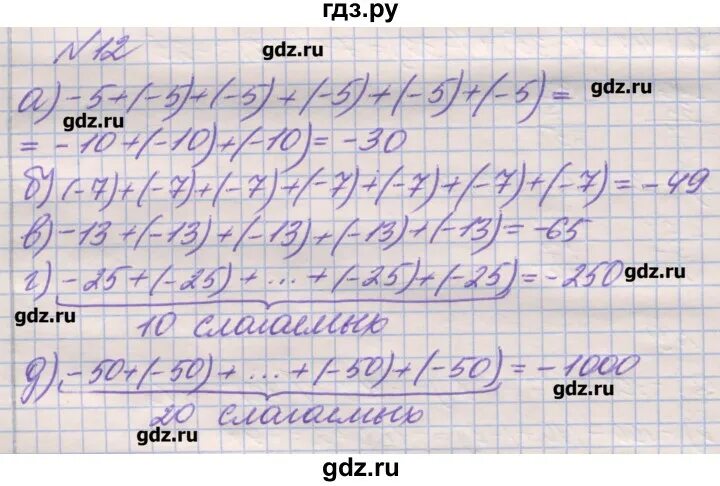 гдз.ру
№12
gdz.ru
а) -5+(-5)+(-5)+(-5)+(-5)+(-5)=
gdz.ru
gdz.ru
= -10+(-10)+(-10)= -30
б) (-7)+(-7)+(-7)+(-7)+(-7)+(-7)+(-7)= -49
в) -13+(-13)+(-13)+(-13)+(-13)= -65
г) -25+(-25)+...+(-25)+(-25)= -250
gdz.ru
gdz.ru
10 слагаемых
д) -50+(-50)+...+(-50)+(-50)= -1000
gdz.ru
20 слагаемых
gdz.ru
gdz.ru